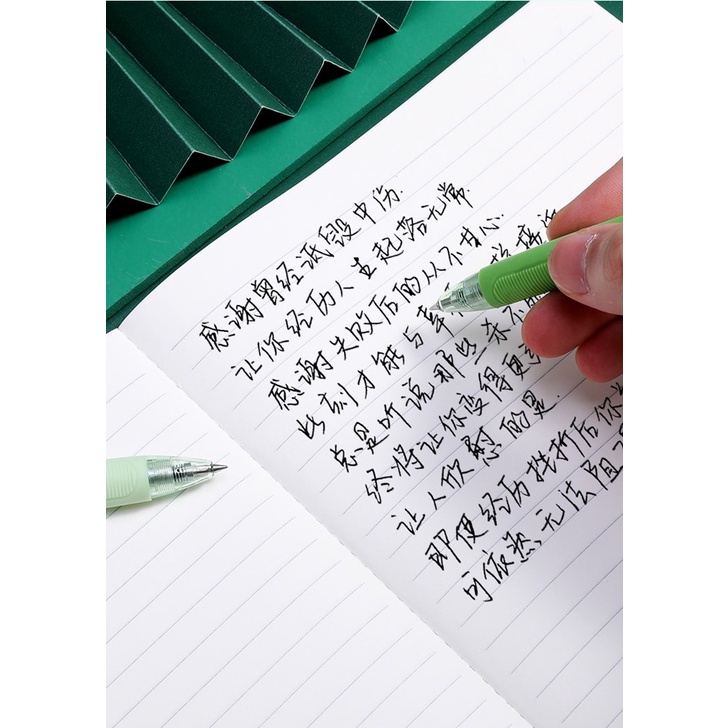 感谢曾经诋毁中伤.
让你经历人生起落无常
感谢失败后的从不甘心
此刻才能与幸
总是听说那些 杀不
终将让你变得更
让人欣慰的是.
即便经历挫折后你
可依然无法阻